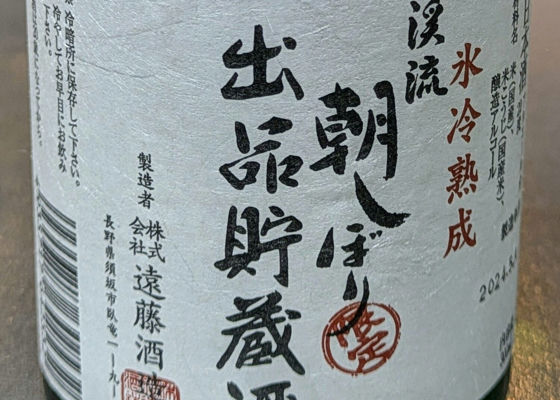 日本酒
米(国産)、
米こうじ(国産米)、
醸造アルコール
2024.5.
氷冷熟成
渓流
朝しぼり
限定
出品貯蔵酒
製造者
株式会社
遠藤酒造
長野県須坂市臥竜一ー九ー
冷暗所に保存して下さい。
冷やしてお早目にお飲み
下さい。